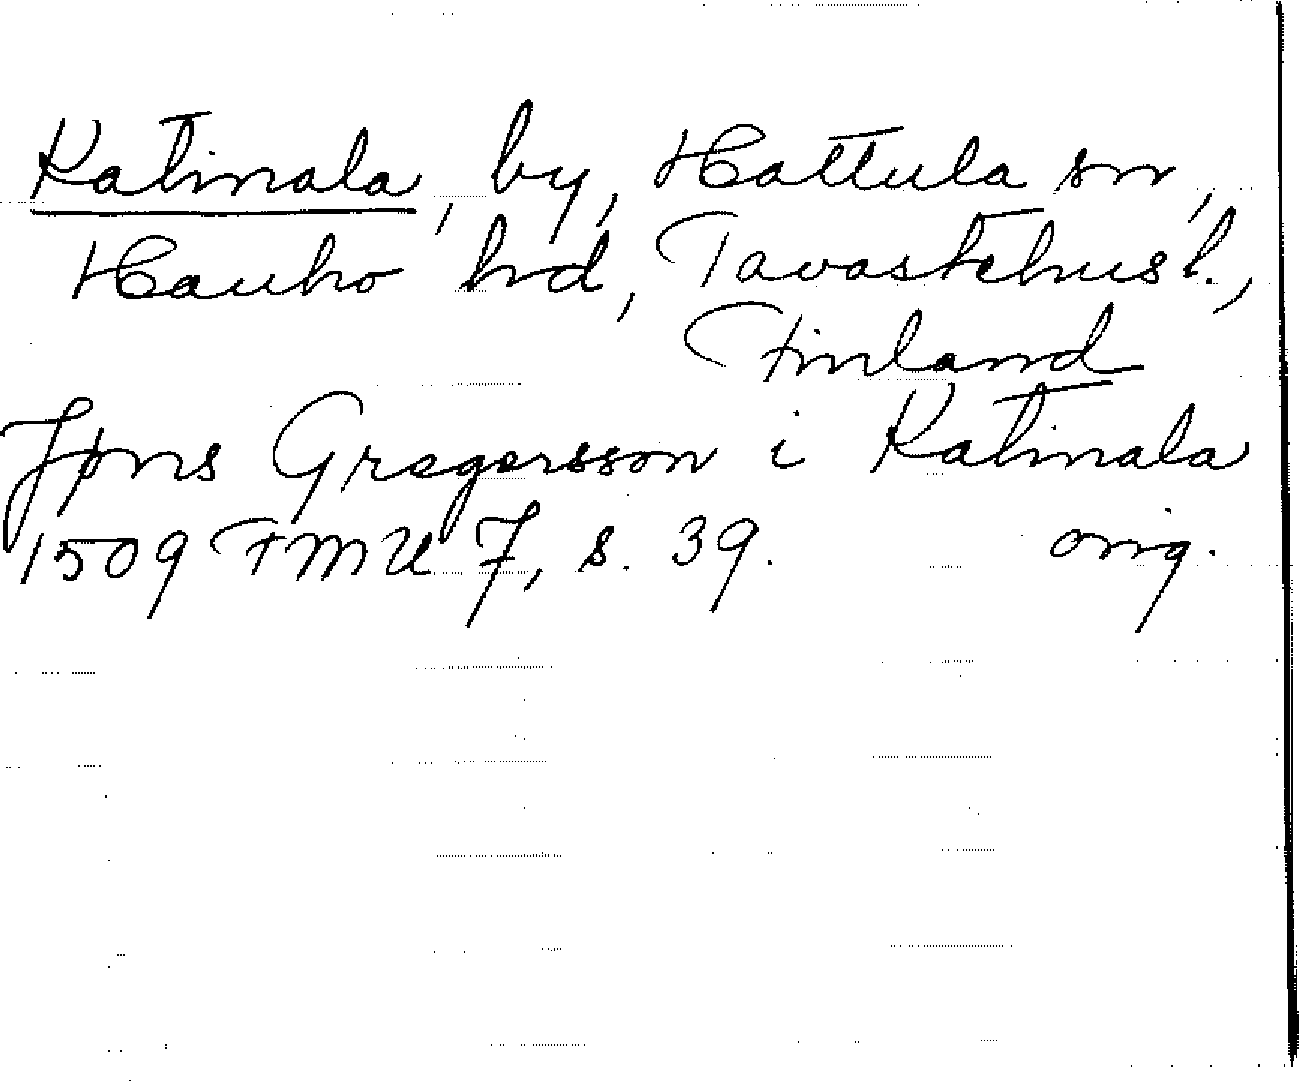 Katinala, by, Hattula sn,
Hauho hd, Tavastehus l.,
Finland
Jöns Gregersson i Katinala
1509 FMU 7, s. 39. orig.